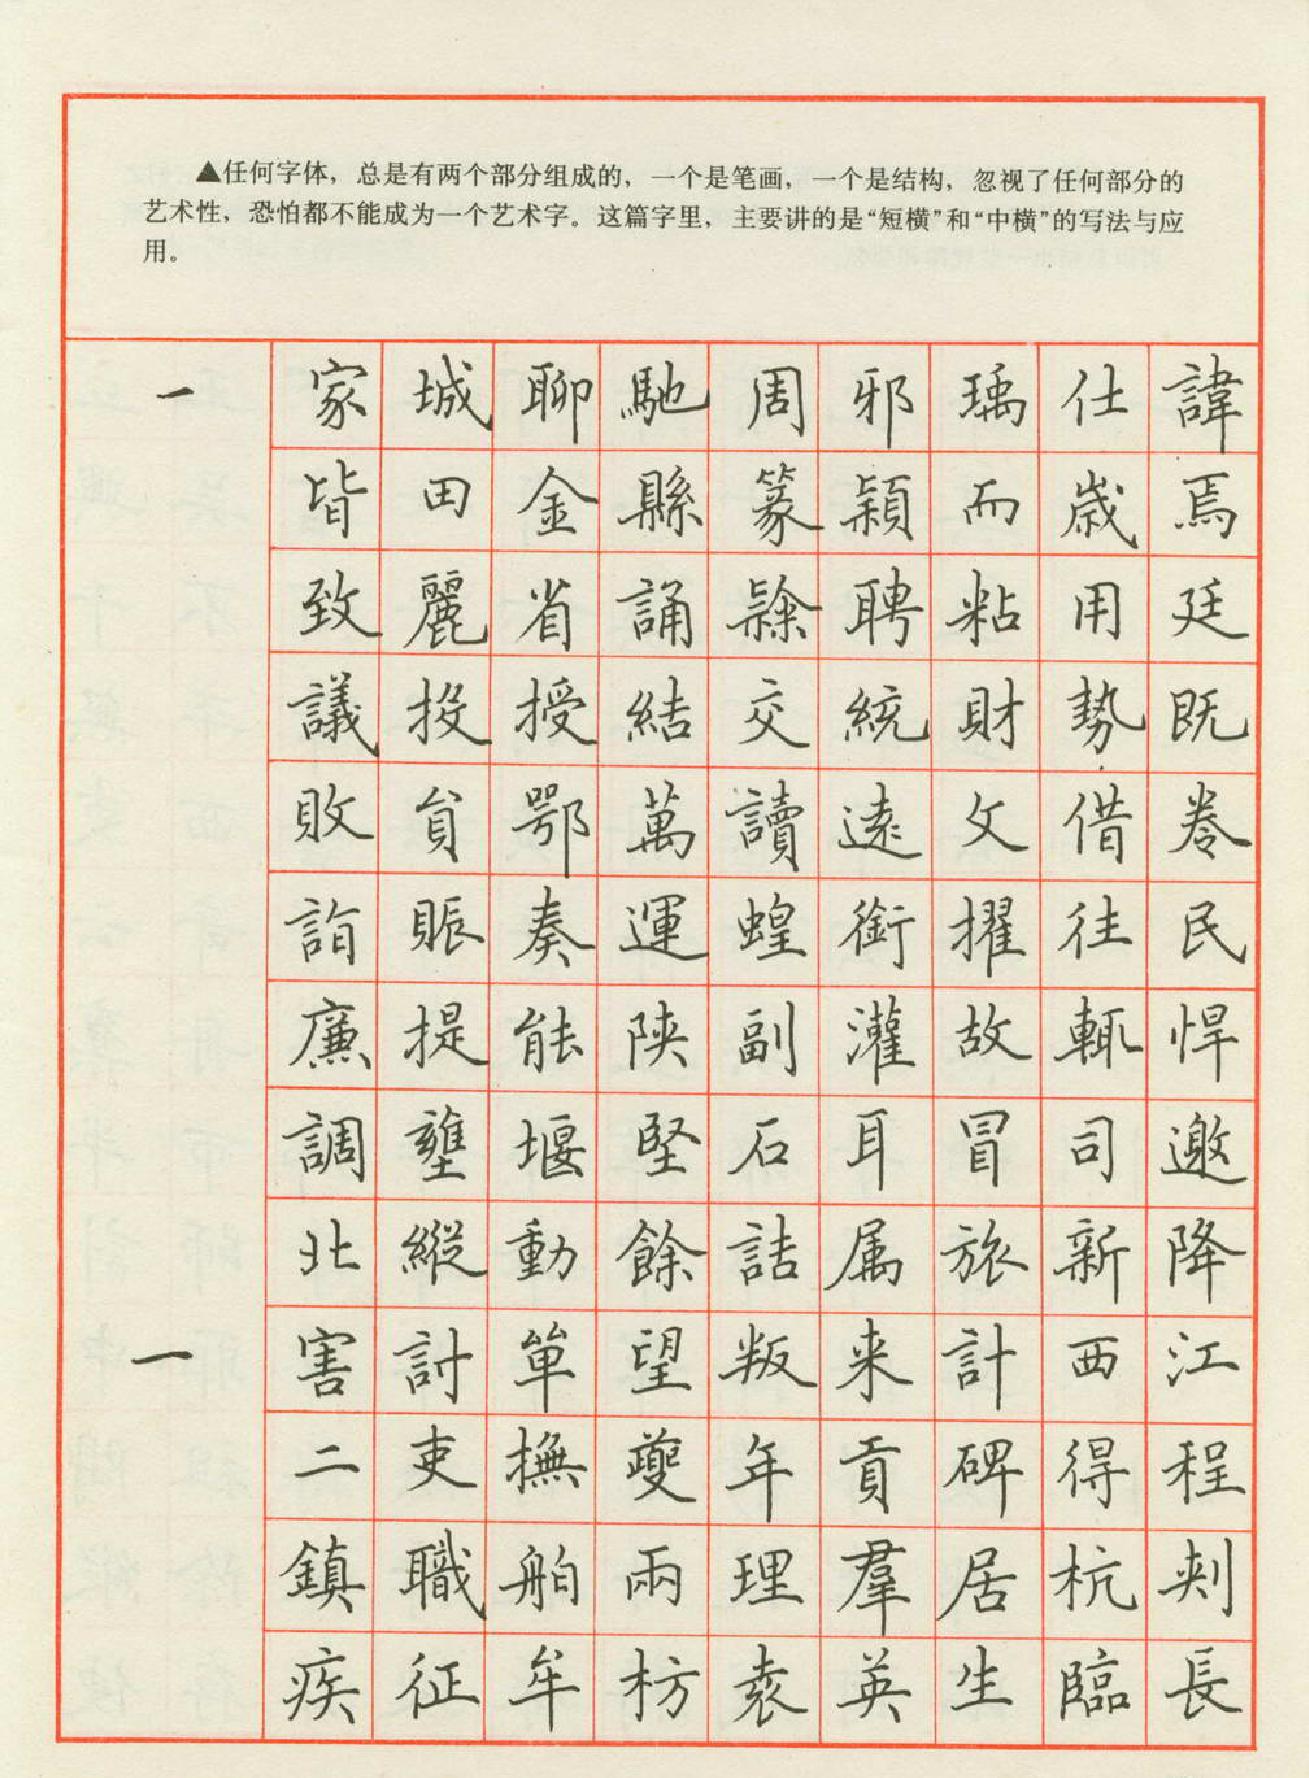 ▲任何字体，总是有两个部分组成的，一个是笔画，一个是结构，忽视了任何部分的
艺术性，恐怕都不能成为一个艺术字。这篇字里，主要讲的是“短横”和“中横”的写法与应
用。
一 家 城 聊 馳 周 邪 瑀 仕 諱
皆 田 金 縣 篆 穎 而 歲 焉
致 麗 省 誦 隳 聘 粘 用 廷
議 投 授 結 交 統 財 勢 既
敗 貟 鄂 萬 讀 遠 文 借 卷
詣 賑 奏 運 蝗 銜 擢 往 民
廉 提 能 陕 副 灌 故 輒 悍
調 壅 堰 堅 石 耳 冒 司 邀
北 縱 動 餘 詰 属 旅 新 降
一 害 討 単 望 叛 来 計 西 江
二 吏 撫 夔 年 貢 碑 得 程
鎮 職 舶 兩 理 羣 居 杭 刾
疾 征 牟 枋 袁 英 生 臨 長